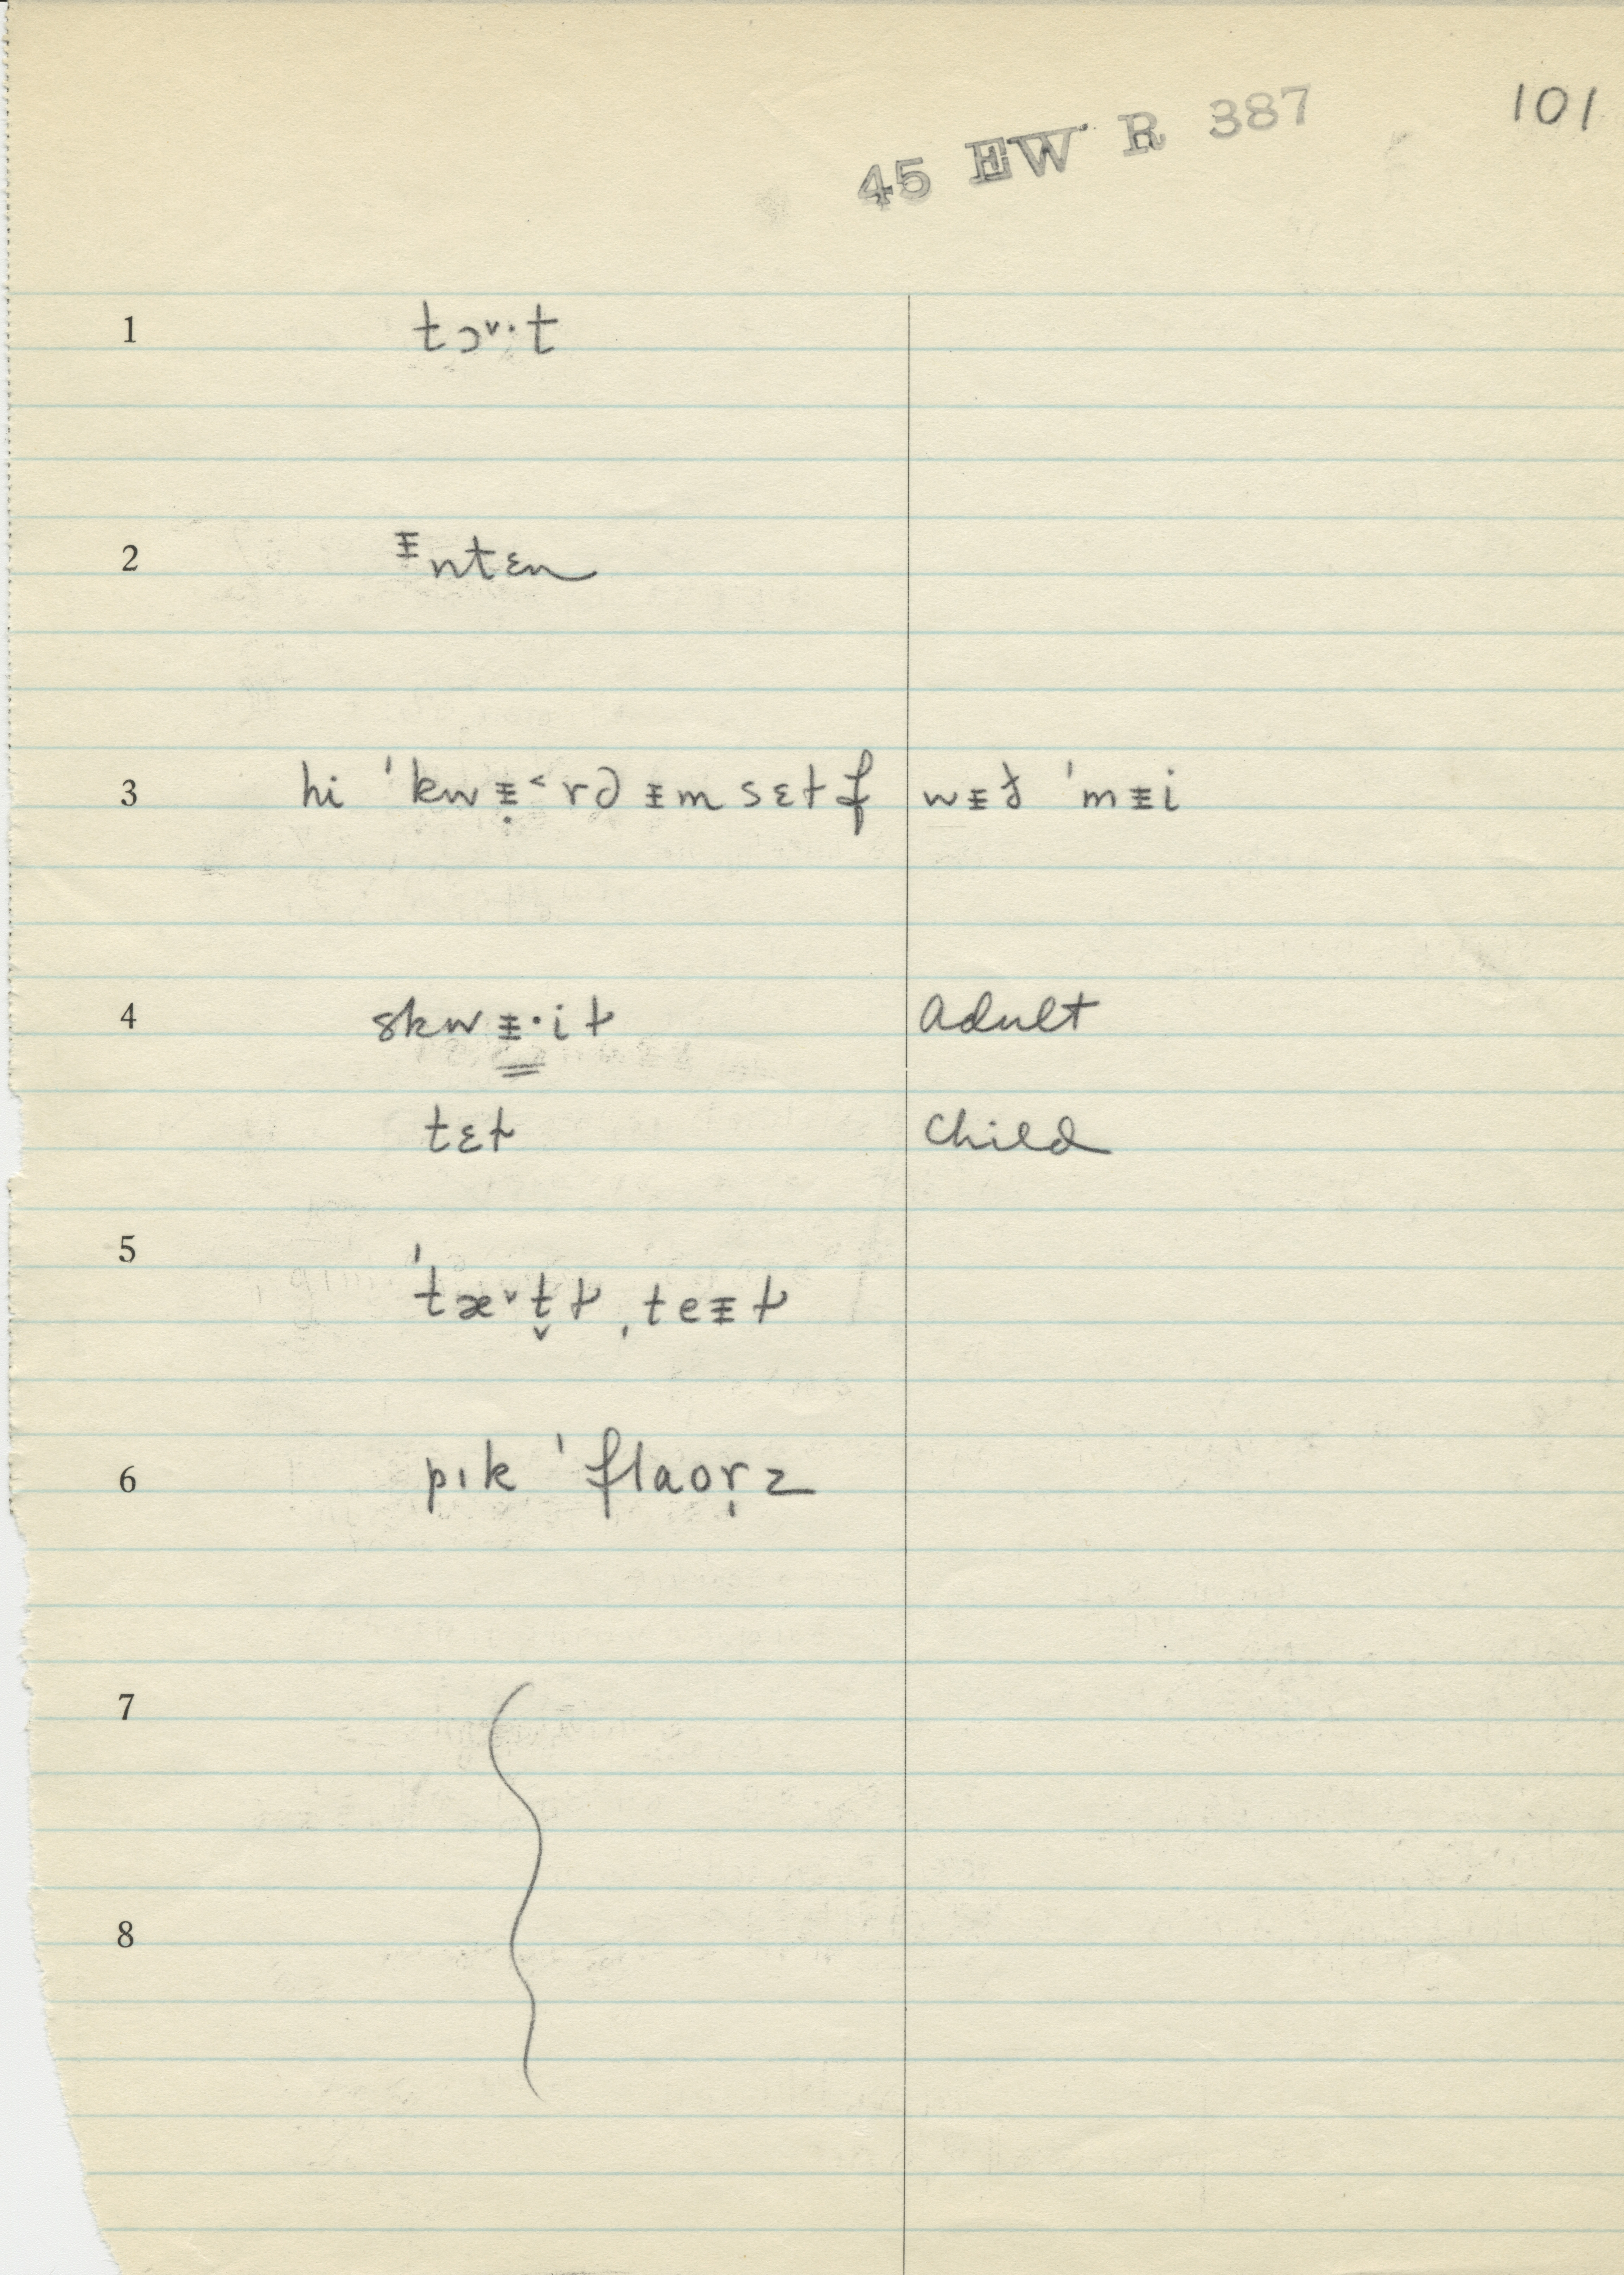 101
45 EW R 387
1 tɔ˅·t
2 ᵻntɛn
3 hi ˈkwᵻ̣˂rəᵻmsɛɫf wᵻð ˈmᵻi
4 skwᵻ̳·iɫ adult
tɛɫ child
5 ˈtæ˅t̬ɫ ˌteᵻɫ
6 pɪk ˈflaor̩z
7
8